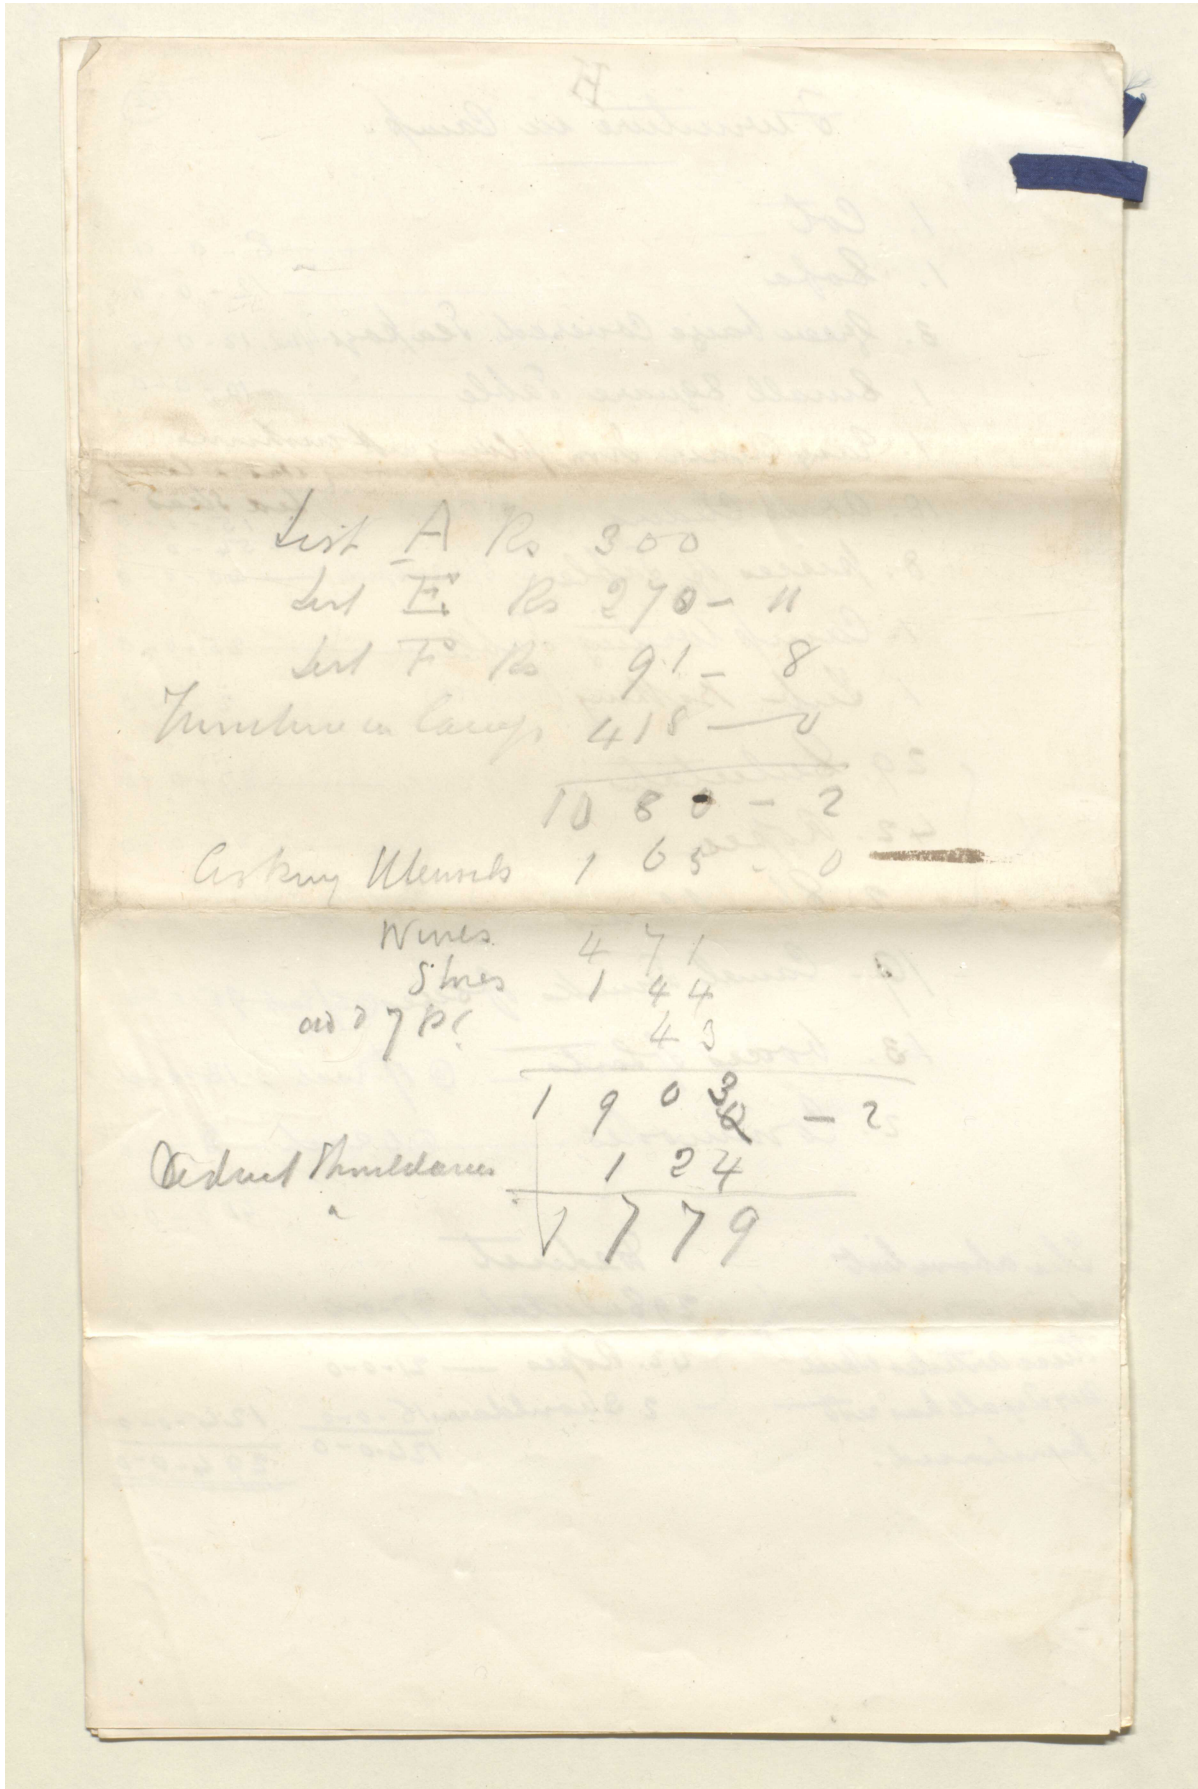 List A Rs 300
List E Rs 270 - 11
List F Rs 91 - 8
Furniture in Camp 418 - 0
1080 - 2
Cooking Utensils 165 - 0
Wines 471
Stores 144
43
1903 - 2
Deduct Shouldaries 124
1779